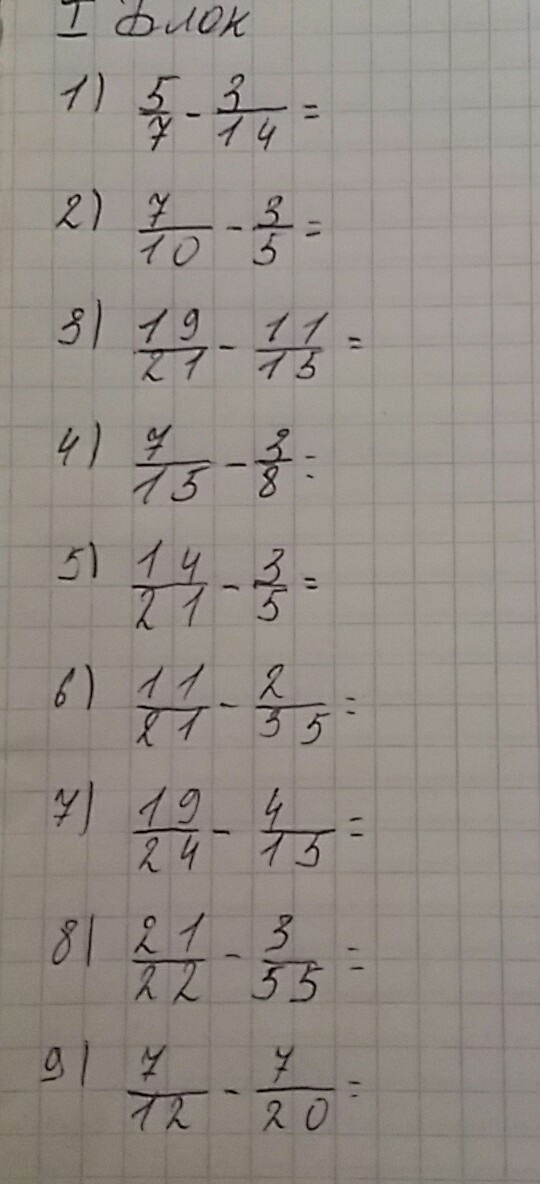 I блок
1) 5/7 - 3/14 =
2) 7/10 - 3/5 =
3) 19/21 - 11/15 =
4) 7/15 - 3/8 =
5) 14/21 - 3/5 =
6) 11/21 - 2/35 =
7) 19/24 - 4/15 =
8) 21/22 - 3/55 =
9) 7/12 - 7/20 =